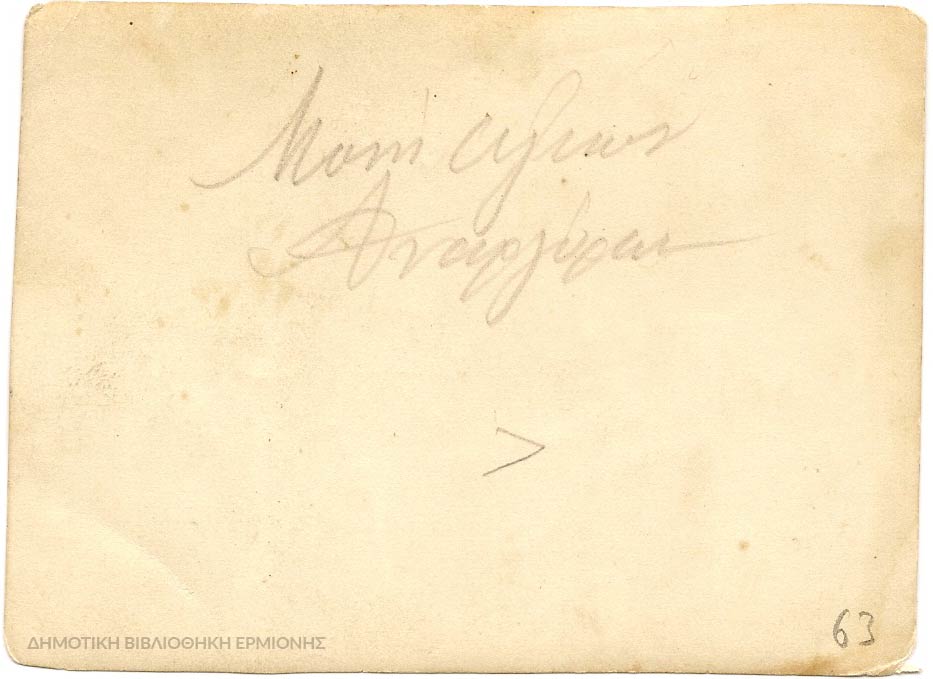 Μονή Αγίων
Αναργύρων
>
63
ΔΗΜΟΤΙΚΗ ΒΙΒΛΙΟΘΗΚΗ ΕΡΜΙΟΝΗΣ